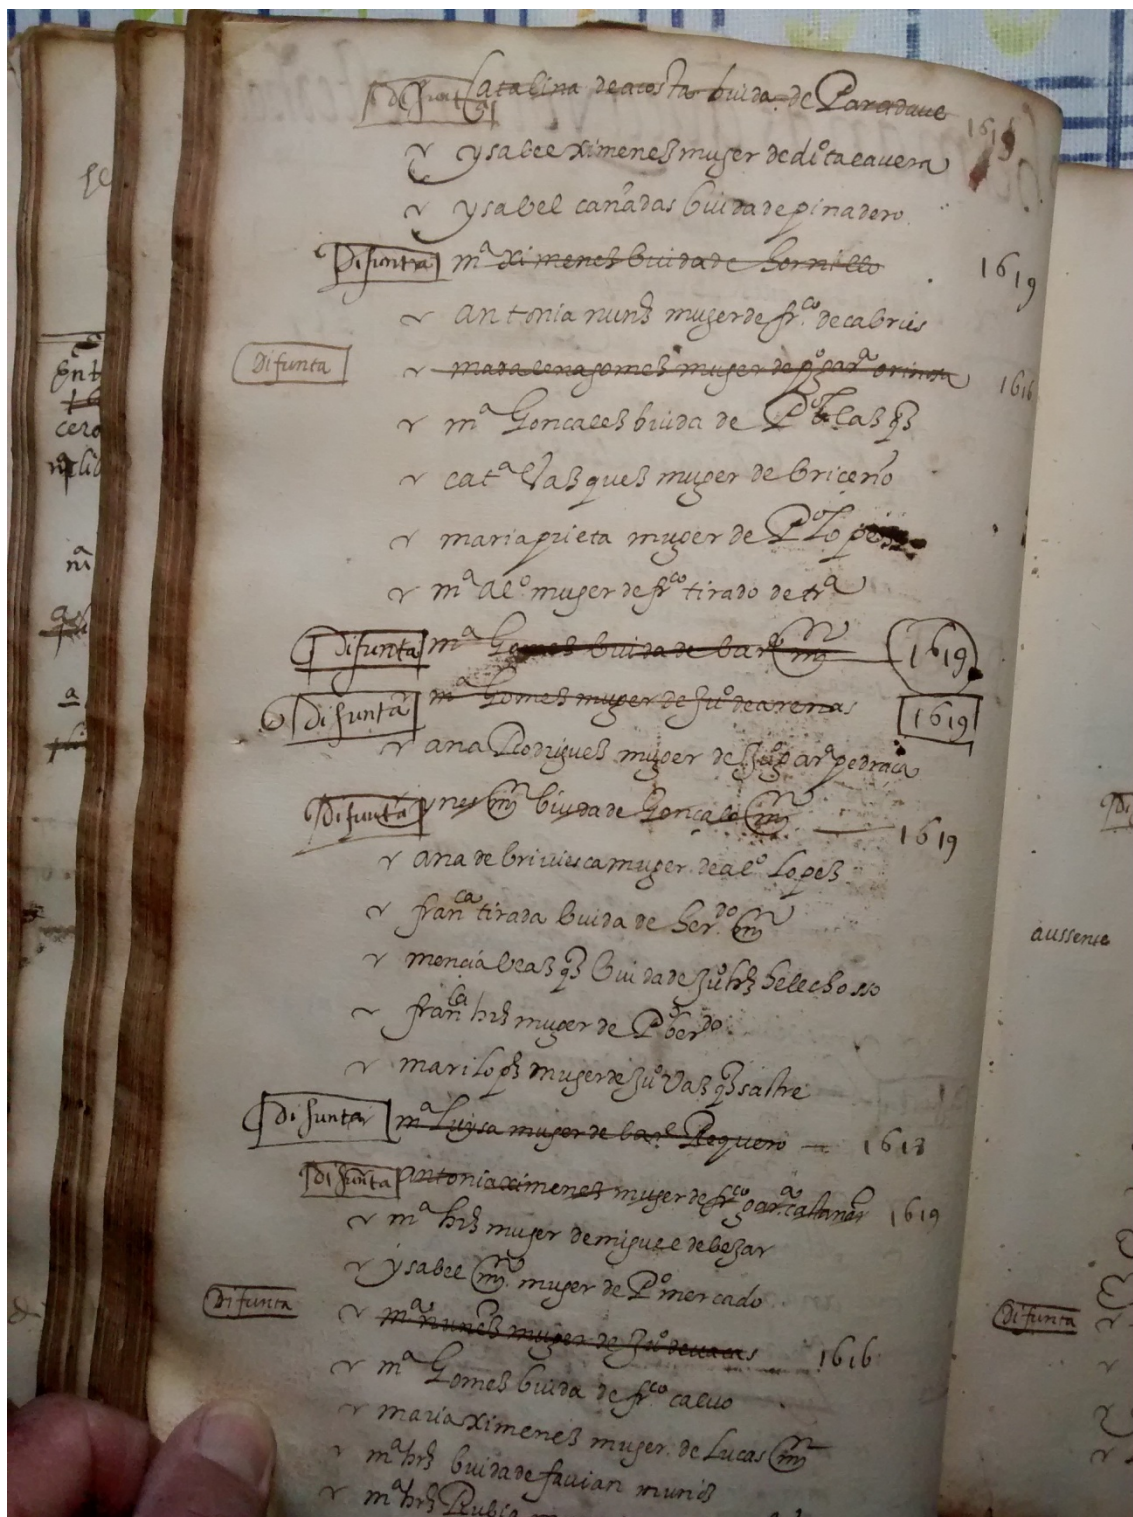 Difunta Catalina de acosta biuda de Paradaue 1619
ysabel ximenez muger de di.o talauera
ysabel cañadas biuda de pinadero
Difunta m.a ximenez biuda de hornillo 1619
antonia nunz muger de fr.co de cabries
Difunta madalena gomez muger de p.o gar.a 1616
m.a Goncalez biuda de P.o blasqz
cat.a Vazquez muger de briçeño
maria prieta muger de P.o Lopez
m.a al.o muger de fr.co tirado de tr.a
Difunta m.a Gomez biuda de bar.e mrn 1619
Difunta m.a Gomez muger de Ju.o de arenas 1619
ana Rodriguez muger de Ju.o gar.a pedraça
Difunta ynes mrn biuda de Gonçalo mrn 1619
ana de briuiesca muger de al.o Lopez
fran.ca tirada biuda de her.do mrn
mencia blasqz biuda de Ju.o hrz helechosso
fran.ca hrz muger de P.o ber.do
mari lopz muger de Ju.o Vazqz sastre
Difunta m.a Luysa muger de bar.e Requero 1618
Difunta antonia ximenez muger de fr.co gar.a castañar 1619
m.a hrz muger de miguel de bejar
ysabel mrn muger de P.o mercado
Difunta m.a nunez muger de Ju.o de uacas 1616
m.a Gomez biuda de fr.co caluo
maria ximenez muger de Lucas mrn
m.a hrz biuda de fauian munoz
m.a hrz Rubia
aussente
Difunta